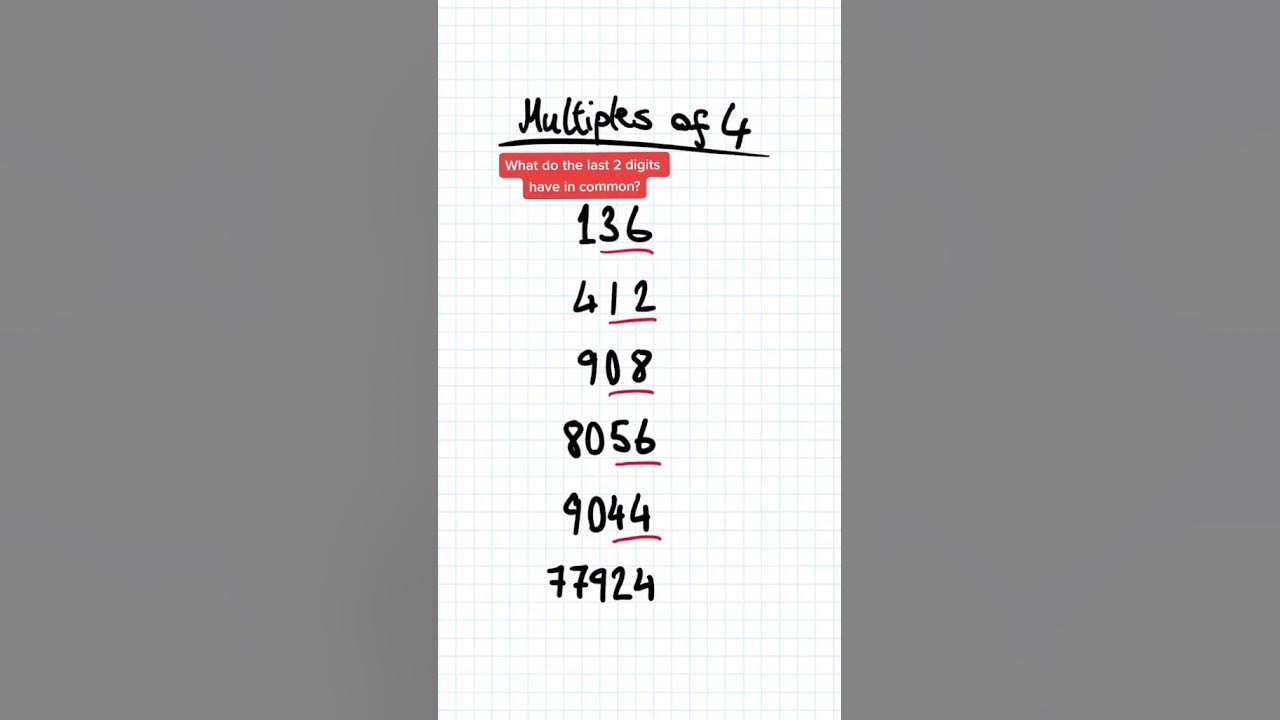 Multiples of 4
What do the last 2 digits
have in common?
136
412
908
8056
9044
77924